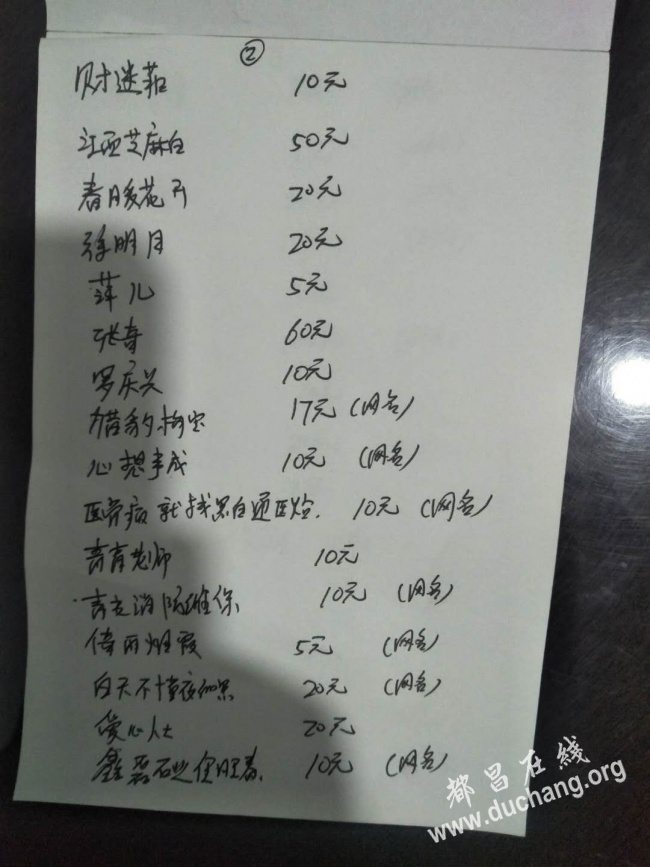 ②
财迷茹 10元
江西芝麻白 50元
春暖花开 20元
徐明月 20元
萍儿 5元
张奇 60元
罗庆兴 10元
猎豹 17元 (网名)
心想事成 10元 (网名)
医骨病就找黑白通医 10元 (网名)
育育老师 10元
消防维保 10元 (网名)
倚雨烟霞 5元 (网名)
白天不懂夜的黑 20元 (网名)
爱心人士 20元
鑫磊石业 10元 (网名)
都昌在线
www.duchang.org